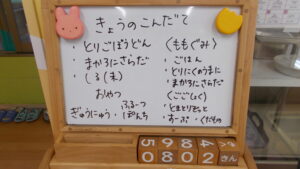 きょうのこんだて
・とりごぼうどん
・まかろにさらだ
・しる(ま)
おやつ
ぎゅうにゅう・ふるーつぽんち
〈ももぐみ〉
・ごはん
・とりにくのうまに
・まかろにさらだ
〈ごごしょく〉
・とまとりぞっと
・すーぷ ・くだもの